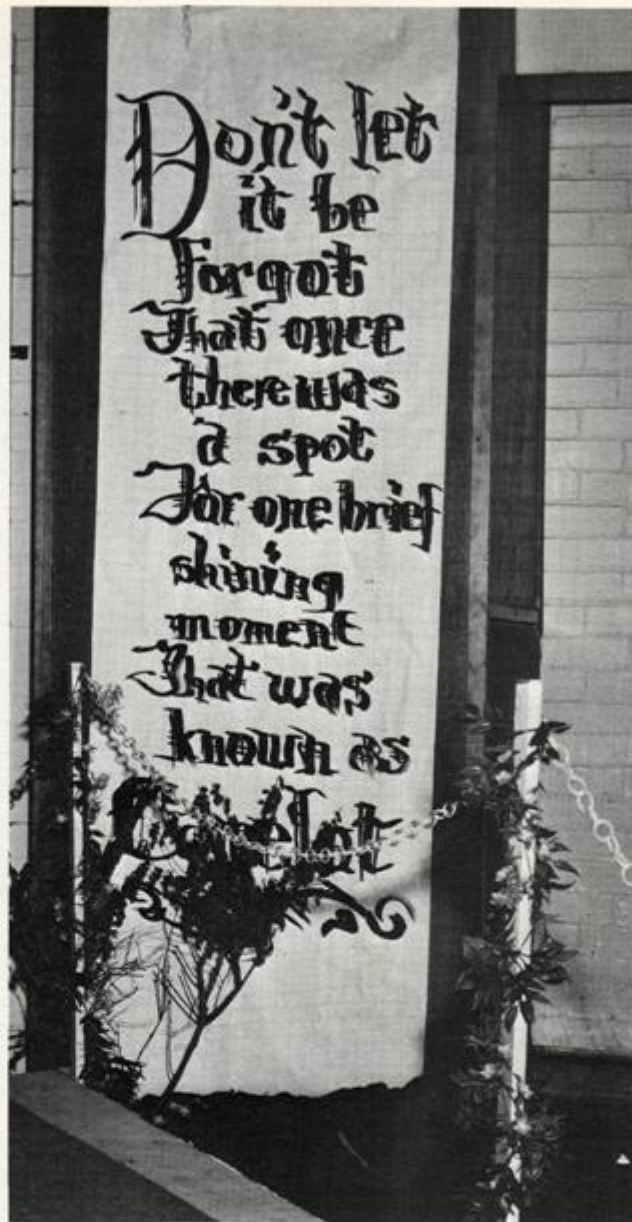 Don't let
it be
Forgot
That once
there was
a spot
For one brief
shining
moment
That was
known as